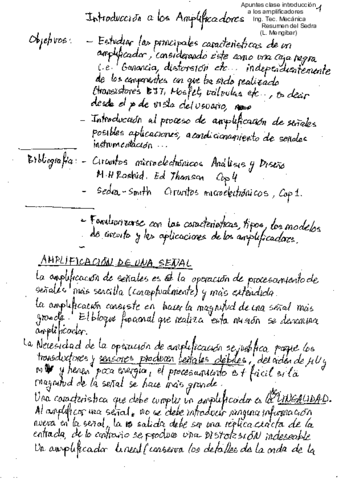 Apuntes clase introducción
a los amplificadores
Ing. Tec. Mecánica
Resumen del Sedra
(L. Mengibar)
1
Introducción a los Amplificadores
Objetivos: - Estudiar las principales características de un
amplificador, considerando éste como una caja negra
i.e. Ganancia, distorsión etc... independientemente
de los componentes con que ha sido realizado
(transistores BJT, Mosfet, válvulas etc..., es decir
desde el p. de vista del usuario,
- Introducción al proceso de amplificación de señales
posibles aplicaciones, acondicionamiento de señales
instrumentación...
Bibliografía: - Circuitos microelectrónicos Análisis y Diseño
M.H Rashid. Ed Thomson Cap 4
- Sedra-Smith Circuitos microelectrónicos, Cap 1.
- Familiarizarse con las características, tipos, los modelos
de circuito y las aplicaciones de los amplificadores.
AMPLIFICACIÓN DE UNA SEÑAL
La amplificación de señales es la operación de procesamiento de
señales más sencilla (conceptualmente) y más extendida.
La amplificación consiste en hacer la magnitud de una señal más
grande. El bloque funcional que realiza esta misión se denomina
amplificador.
La Necesidad de la operación de amplificación se justifica, porque los
transductores y sensores producen señales débiles, del orden de µV y
mV y tienen poca energía, el procesamiento es + fácil si la
magnitud de la señal se hace más grande.
Una característica que debe cumplir un amplificador es la LINEALIDAD.
Al amplificar una señal, no se debe introducir ninguna información
nueva en la señal, la salida debe ser una réplica exacta de la
entrada, de lo contrario se produce una DISTORSIÓN indeseable
Un amplificador lineal (conserva los detalles de la onda de la